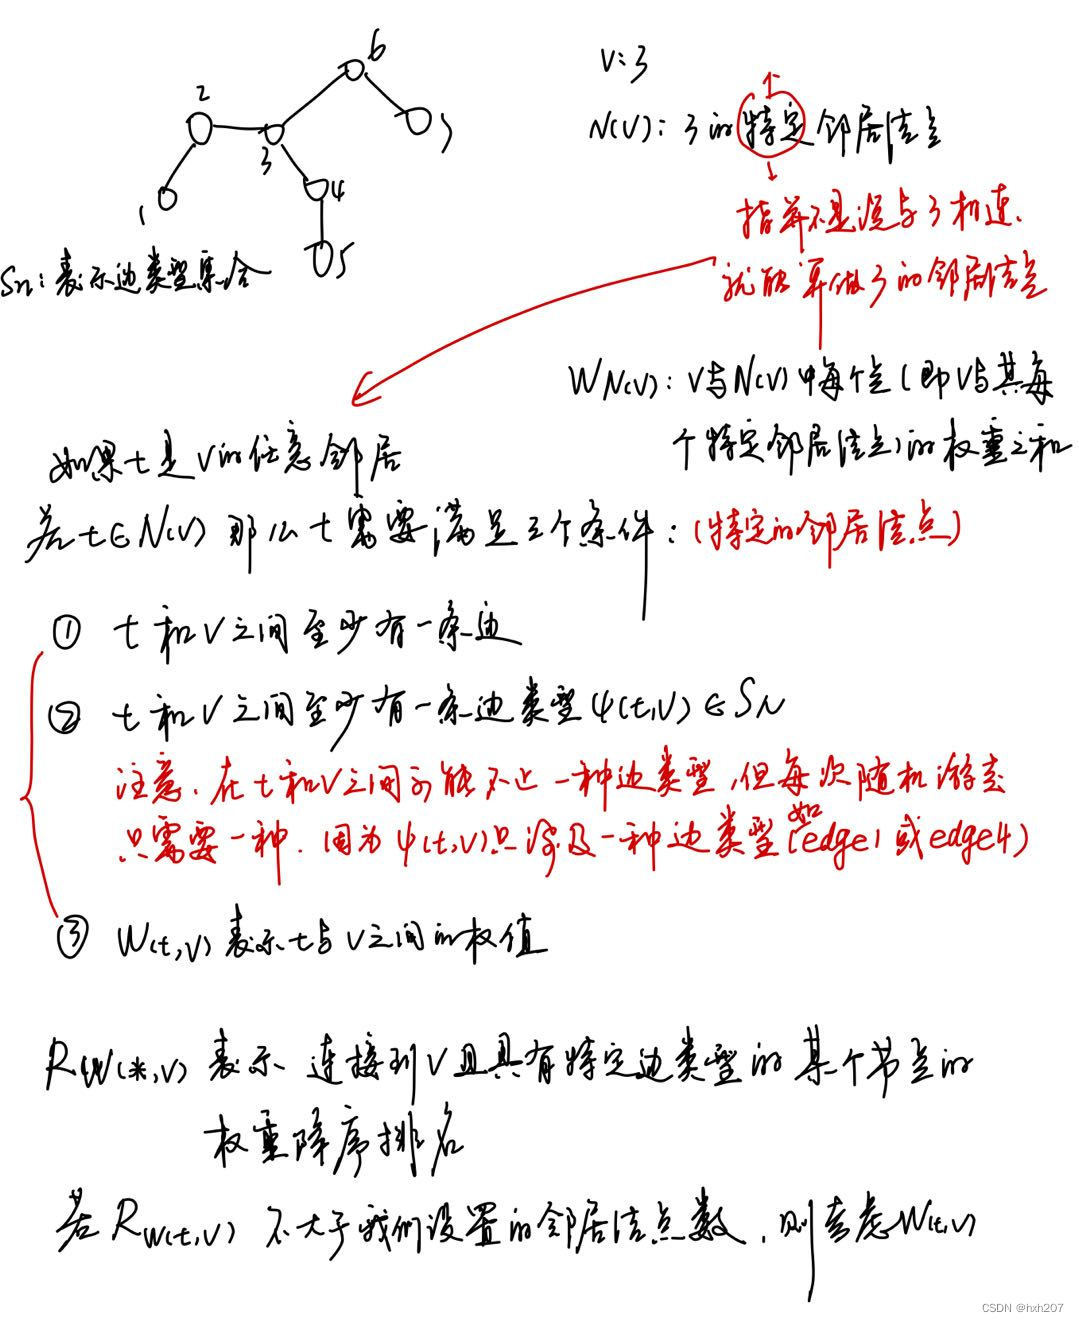 6
2
3
7
4
1
5
Sn: 表示边类型集合
V: 3
N(V): 3的特定邻居结点
指并不是说与3相连
就能算做3的邻居结点
WN(V): V与N(V)中每个点(即V与其每
个特定邻居结点)的权重之和
如果t是V的任意邻居
若t∈N(V) 那么t需要满足三个条件: (特定的邻居结点)
① t和V之间至少有一条边
② t和V之间至少有一条边类型ψ(t,V)∈Sn
注意,在t和V之间可能不止一种边类型,但每次随机游走
只需要一种.因为ψ(t,V)只涉及一种边类型(如edge1或edge4)
③ W(t,V) 表示t与V之间的权值
RW(*,V) 表示连接到V且具有特定边类型的某个节点的
权重降序排名
若RW(t,V) 不大于我们设置的邻居结点数,则考虑W(t,V)
CSDN @hxh207